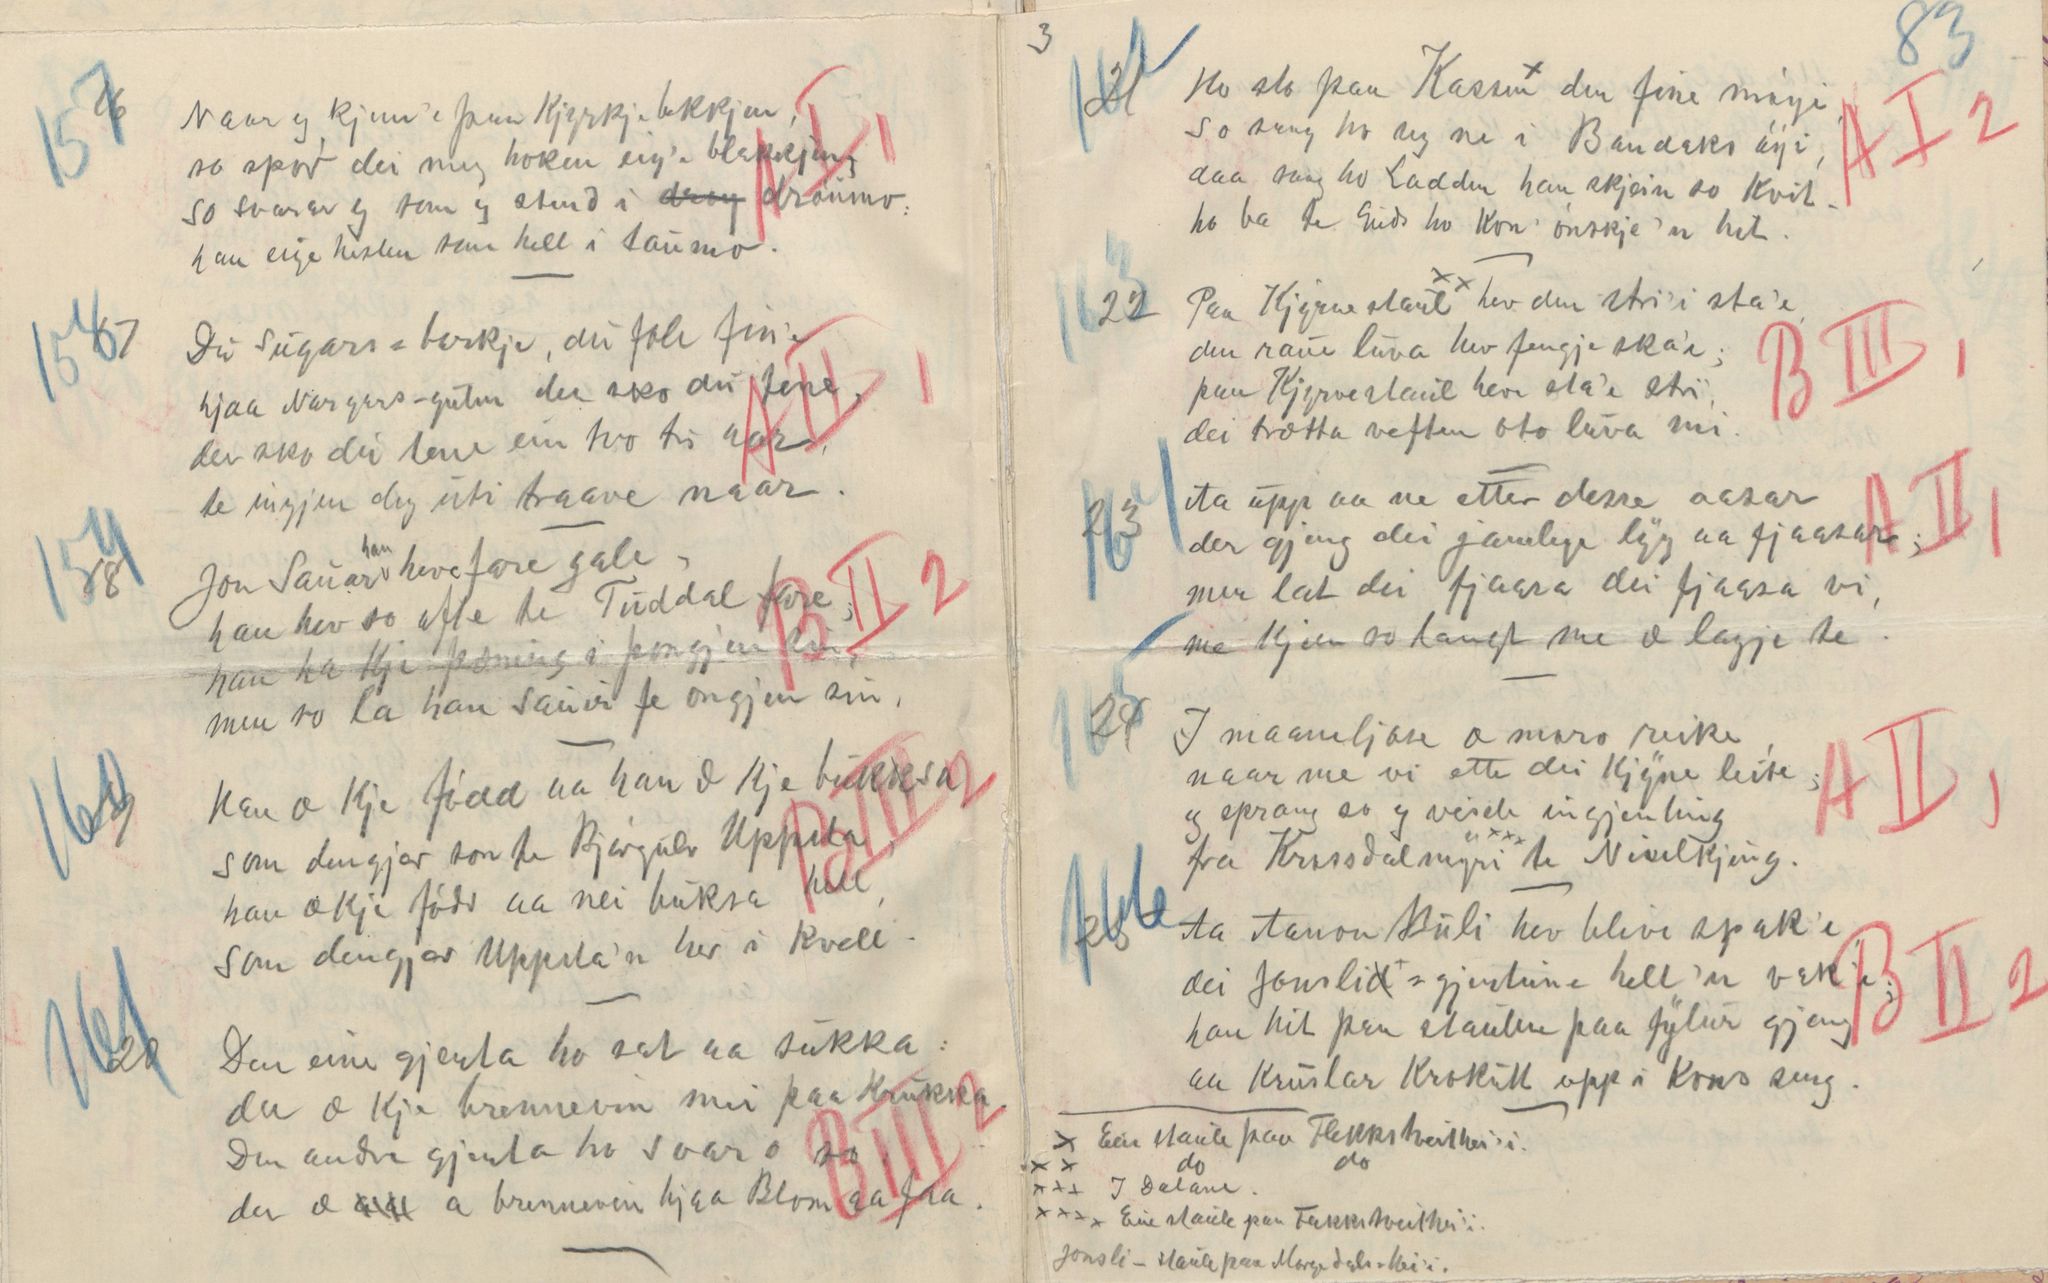 157
16
Naar eg kjem'e paa Kjyrkjebakkjen,
so spør dei meg hoken eig'e blakkjen;
so svarar eg som eg stend i draumo:
han eige hesten som held i taumo.
A I, 1
158
17
Du Sugars-berkje, du fole fin'e
hjaa Nargars-guten der sko du tene,
der sko du tene ein två tri aar,
te ingjen deg uti traave naar.
A II, 1
159
18
Jon Sauar han heve fare gale,
han hev so ofte te Tuddal fare;
han ha kje pæning i pongjen sin,
men so la han Sauvi fe ongjen sin.
B II 2
160
19
Han æ kje fødd aa han æ kje buksa
som dengjer son te Bjørgulv Uppsta,
han æ kje fødd aa nei buksa hell,
som dengjer Uppsta'n her i kvell.
B III 2
161
20
Den eine gjenta ho sat aa sukka:
der æ kje brennevin mei paa krukka.
Den andre gjenta ho svara so
der æ a brennevin hjaa Blom aa faa.
B III 2
3
83
162
21
Ho sto paa Kassin x den fine møyi,
so sang ho seg ne i Bandaks øyi,
daa sang ho Ladden han skjein so kvit
ho ba te Guds ho kon' ønskje'n hit.
A I 2
163
22
Paa Kjyrvestaul xx hev den stri'i sta'e,
den raue luva hev fengje ska'e;
paa Kjyrvestaul heve sta'e stri,
dei trøtta veften oto luva mi.
B III, 1
164
23
Aa upp aa ne etter desse aasar
der gjeng dei jamlege lyg aa fjaasar;
men lat dei fjaasa dei fjaasa vi,
me kjem so langt me æ lagje te.
A II, 1
165
24
I maaneljose æ moro reike,
naar me vi ette dei kjyne leite;
eg sprang so eg visste ingjenting
fra Krossdalmyri xxx te Nisilkjønn.
A II, 1
166
25
Aa Aanon Buli hev blive spak'e,
dei Jonsli + -gjentune hell'n vak'e;
han hit paa staulen paa fylur gjeng
aa kruslar krokutt upp i kons seng.
B II 2
x Ein staule paa Flekkstveithei'i.
xx do do
xxx I Dalane.
xxxx Ein staule paa Flekkstveithei'i.
Jonsli – staule paa Morgedals-hei'i.